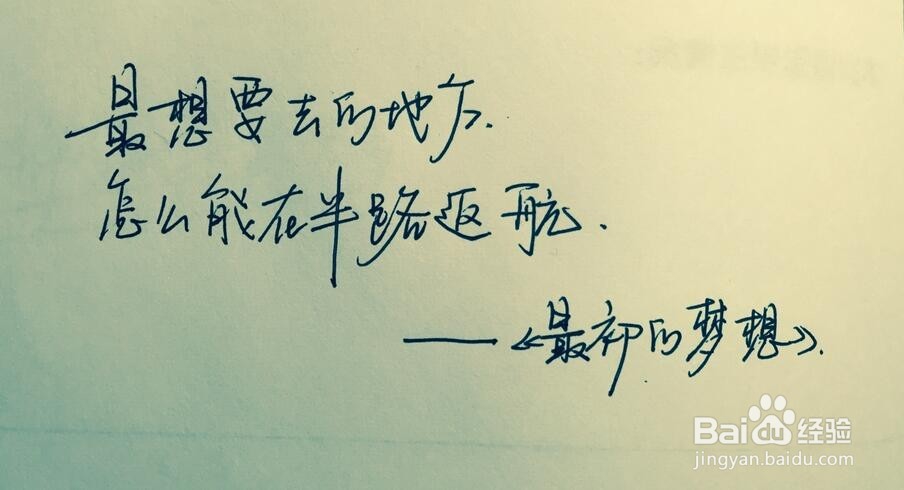 最想要去的地方.
怎么能在半路返航.
——《最初的梦想》.
Baidu经验
jingyan.baidu.com